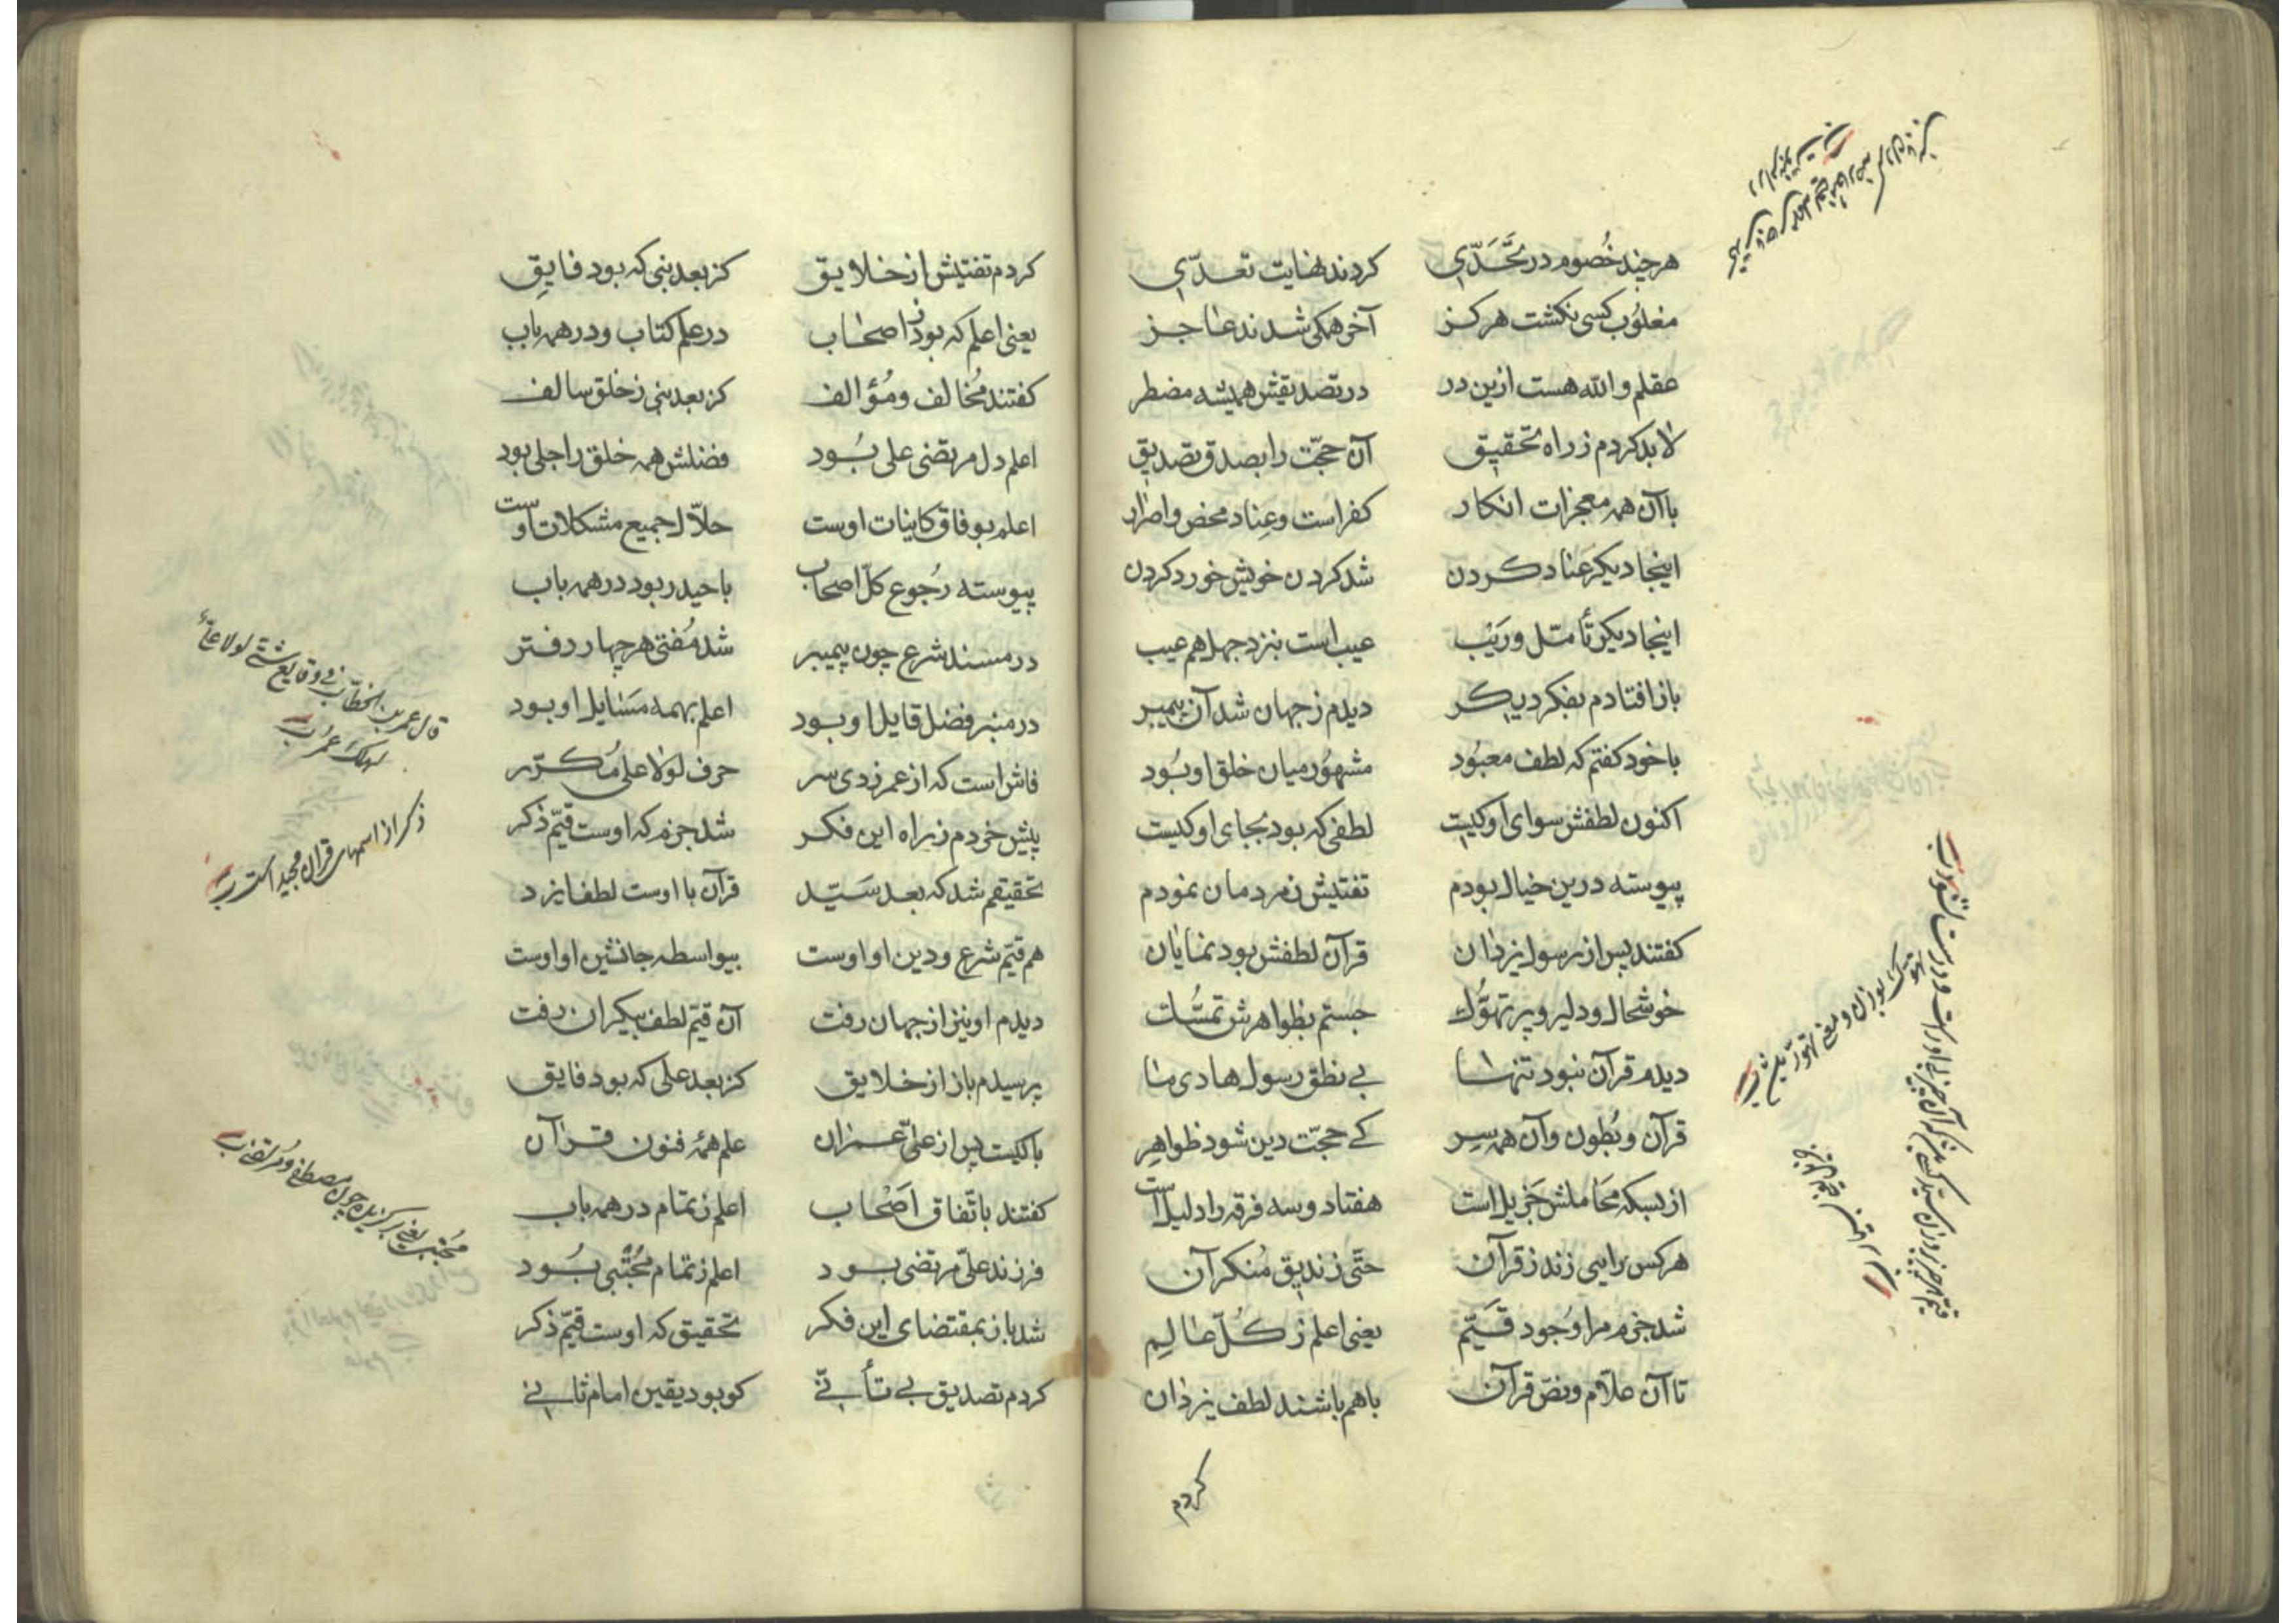 هرچند خصوم در تحدّی کردند نهایت تعدّی
مغلوب کسی نکشت هرکز آخر همکی شدند عاجز
عقلم والله هست ازین در در تصدیقش همیشه مضطر
لابد کردم ز راه تحقیق آن حجّت را بصدق تصدیق
با آن همه معجزات انکار کفر است وعناد محض واصرار
اینجا دیکر عناد کردن شد کردن خویش خورد کردن
اینجا دیکر تأمّل وریب عیب است بنزد جهل هم عیب
باز افتادم بفکر دیکر دیدم ز جهان شد آن پیمبر
با خود کفتم که لطف معبود مشهور میان خلق او بُود
اکنون لطفش سوای او کیست لطفی که بود بجای او کیست
پیوسته درین خیال بودم تفتیش ز مردمان نمودم
کفتند پس از رسول یزدان قرآن لطفش بود نمایان
خوشحال ودلیر وپر تهوّک جستم بظواهرش تمسّک
دیدم قرآن نبود تنها بی نطق رسول هادی ما
قرآن وبُطون وآن همه سِر کے حجّت دین شود ظواهِر
از بسکه محاملش جزیل است هفتاد وسه فرقه را دلیل است
هرکس رایی زند ز قرآن حتّی زندیق مُنکر آن
شد جزم مرا وُجود قیّم یعنی اعلم ز کُلّ عالِم
تا آن علّام ونصّ قرآن با هم باشند لطف یزدان
کردم
کردم تفتیش از خلایق کز بعد نبی که بود فایق
یعنی اعلم که بود ز اصحاب در علم کتاب ودر همه باب
کفتند مُخالف ومُؤالف کز بعد نبی ز خلق سالف
اعلم دل مرتضی علی بُود فضلش همه خلق را جلی بود
اعلم بوفاق کاینات اوست حلّال جمیع مشکلات اوست
پیوسته رُجوع کلّ اصحاب با حیدر بود در همه باب
در مسند شرع چون پیمبر شد مُفتی هر چهار دفتر
در منبر فضل قایل او بود اعلم بهمه مَسایل او بود
فاش است که از عمر زدی سر حرف لولا علی مُکرّر
پیش خردم ز راه این فکر شد جزم که اوست قیّم ذکر
تحقیقم شد که بعد سَیّد قرآن با اوست لطف ایزد
هم قیّم شرع ودین او اوست بیواسطه جانشین او اوست
دیدم او نیز از جهان رفت آن قیّم لطف بیکران رفت
پرسیدم باز از خلایق کز بعد علی که بود فایق
با کیست پس از علیّ عمران علم همهٔ فنون قرآن
کفتند باتّفاق اَصْحاب اعلم ز تمام در همه باب
فرزند علیّ مرتضی بود اعلم ز تمام مُجْتبی بُود
شد باز بمقتضای این فکر تحقیق که اوست قیّم ذکر
کردم تصدیق بی تأنّی کو بود یقین امام ثانی
قال عمر بن الخطّاب فی وقایع شتّی لولا علیّ
لهلک عمرُ
ذکر از اسمهای قرآن مجید است